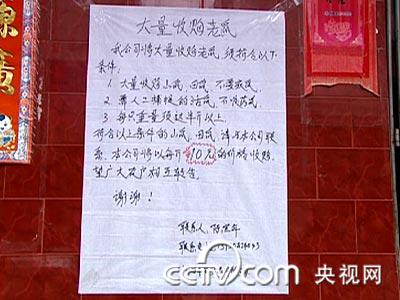 大量收购老鼠
我公司将大量收购老鼠 须符合以下
条件:
1 大量收购山鼠 田鼠 不要家鼠
2 要人工捕捉的活鼠 不收药鼠
3 每只重量须达半斤以上
符合以上条件的山鼠 田鼠 请与本公司联
系 本公司将以每斤10元的价格收购
望广大农户相互转告
谢谢!
联系人 陈
联系
cctv.com 央视网